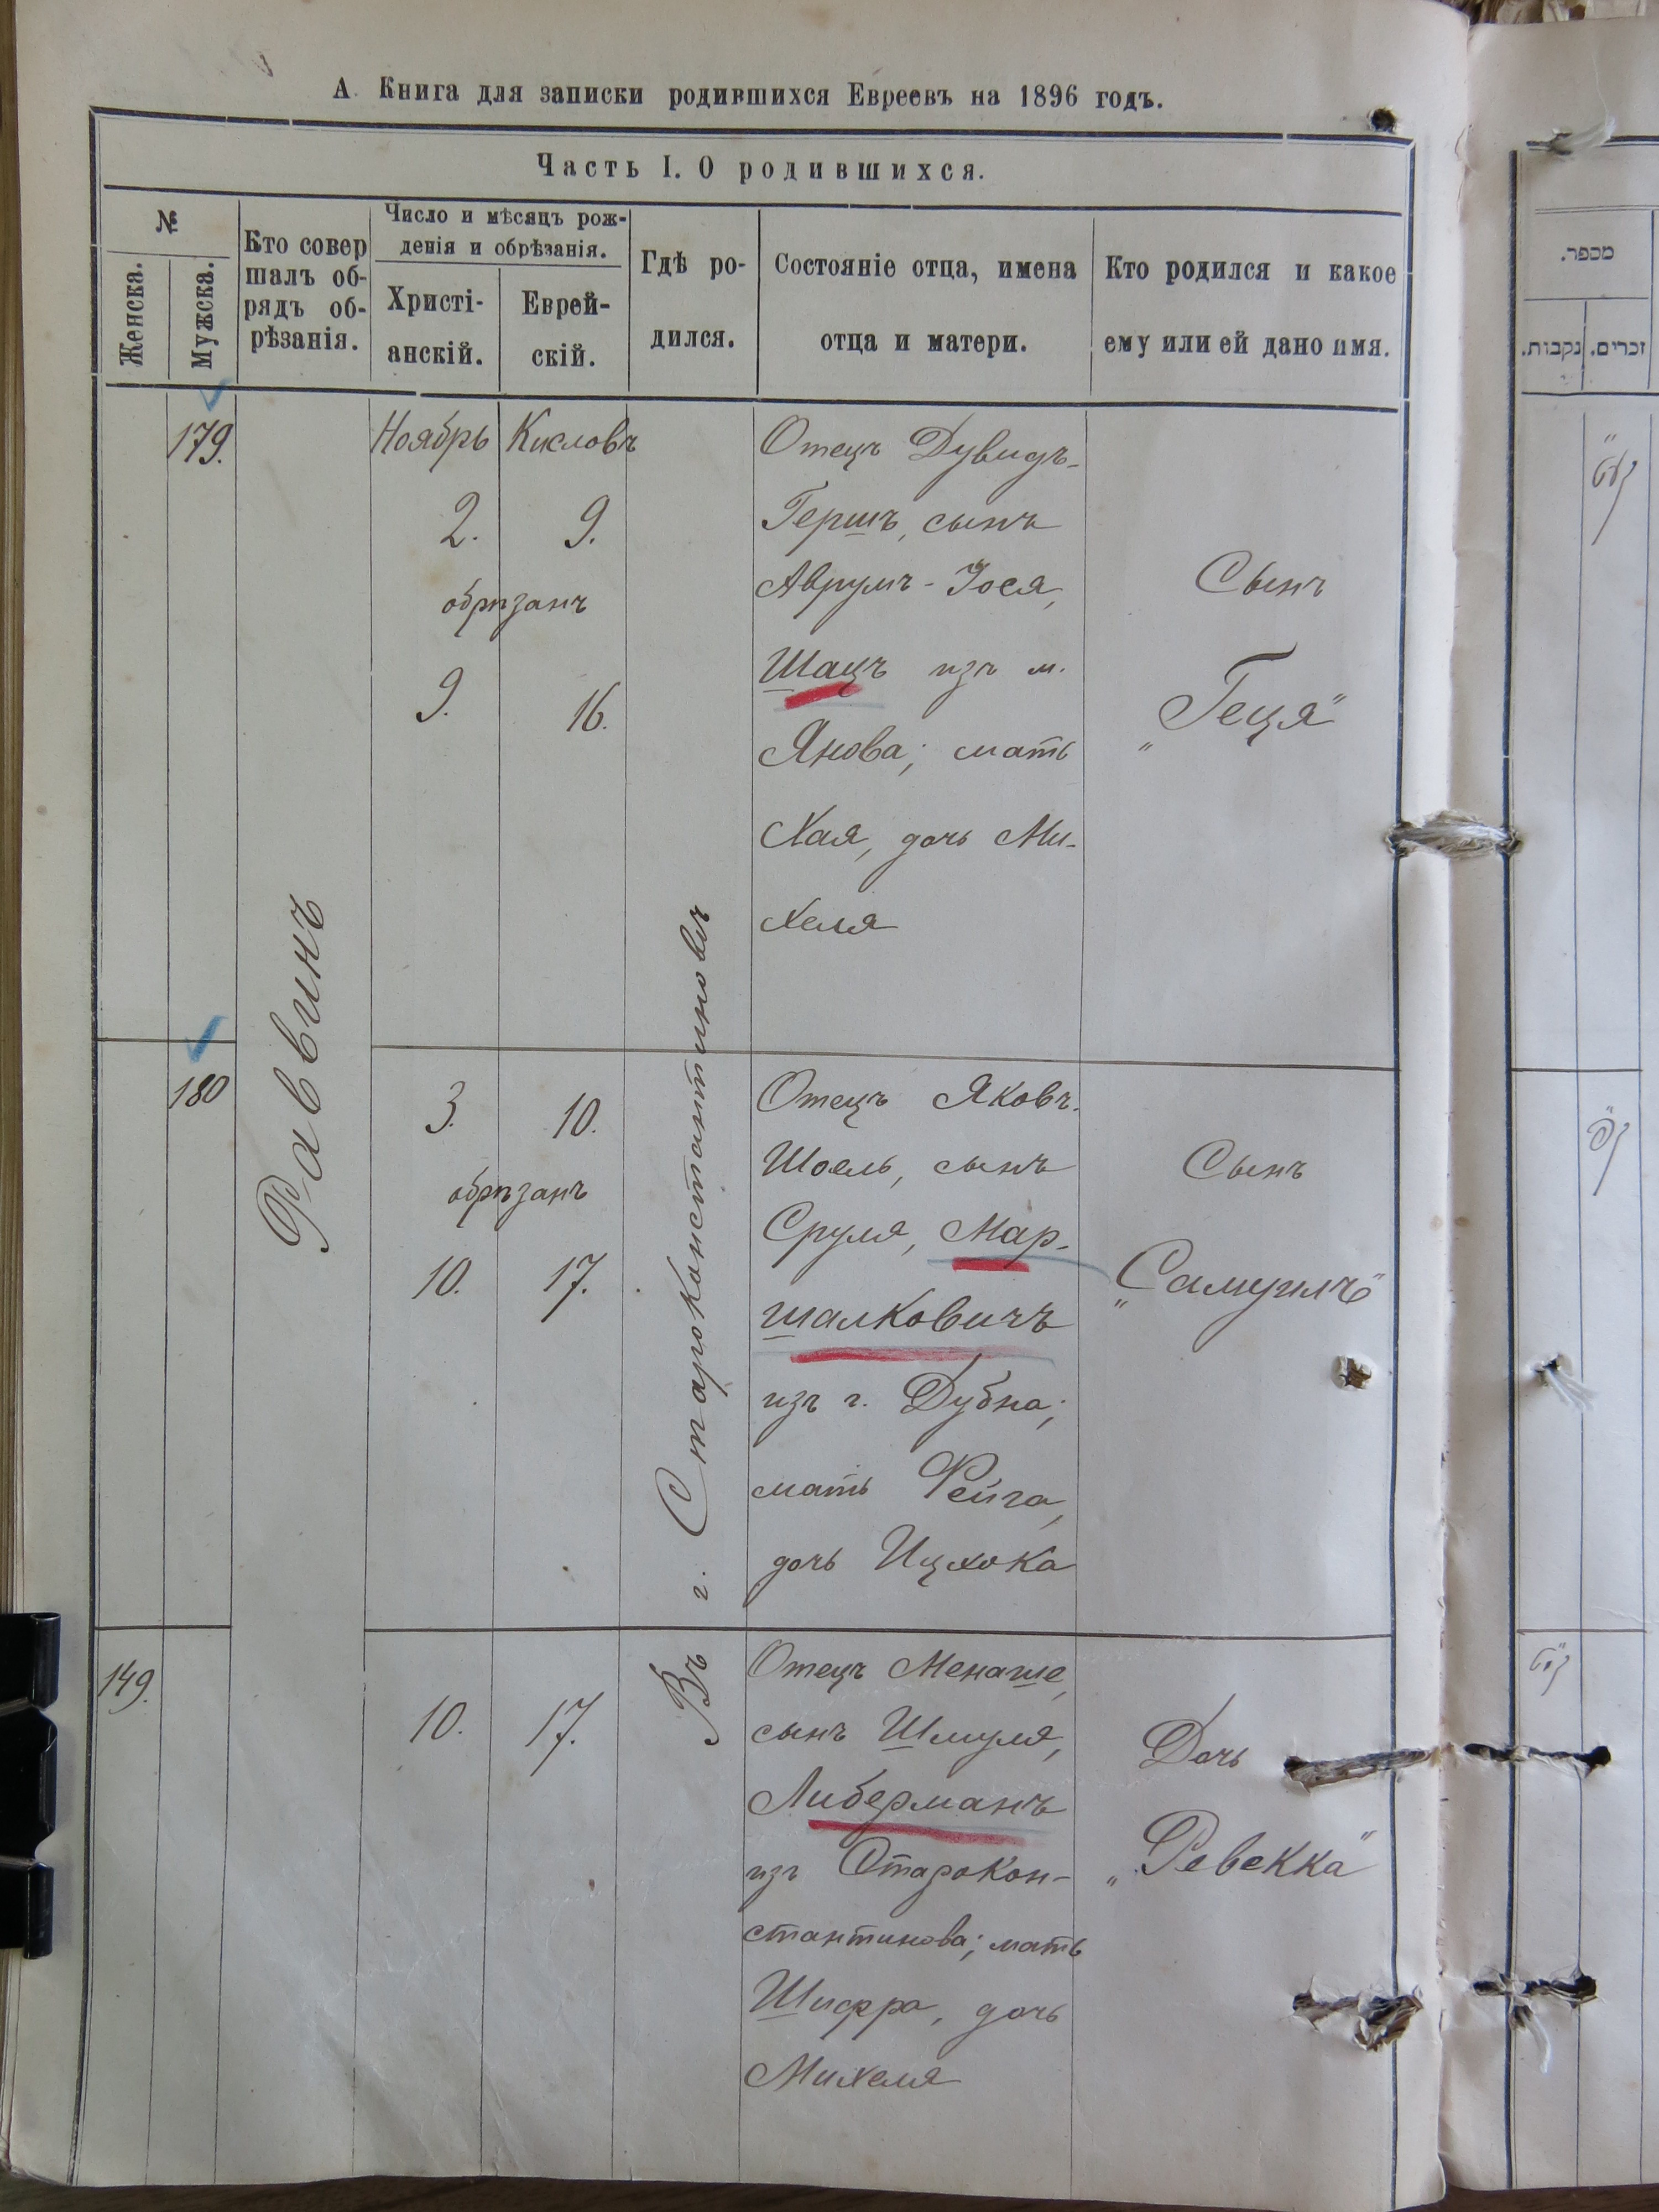 А. Книга для записки родившихся Евреевъ на 1896 годъ.
Часть I. О родившихся.
№
Женска.
Мужска.
Кто совер
шалъ об-
рядъ об-
рѣзанія.
Число и мѣсяцъ рож-
денія и обрѣзанія.
Христі-
анскій.
Еврей-
скій.
Гдѣ ро-
дился.
Состояніе отца, имена
отца и матери.
Кто родился и какое
ему или ей дано имя.
179.
Раввинъ
Ноябрь
Кисловъ
2.
9.
обрѣзанъ
9.
16.
Въ г. Староконстантиновѣ
Отецъ Дувидъ-
Гершъ, сынъ
Аврумъ-Іося,
Шацъ изъ м.
Янова; мать
Хая, дочь Ми-
хеля
Сынъ
„Геця"
180
3.
10.
обрѣзанъ
10.
17.
Отецъ Яковъ-
Шоель, сынъ
Сруля, Мар-
шалковичъ
изъ г. Дубна;
мать Фейга,
дочь Ицхока
Сынъ
„Самуилъ"
149.
10.
17.
Отецъ Менаше,
сынъ Шмуля,
Либерманъ
изъ Старокон-
стантинова; мать
Шифра, дочь
Михеля
Дочь
„Ревекка"
מספר.
נקבות.
זכרים.